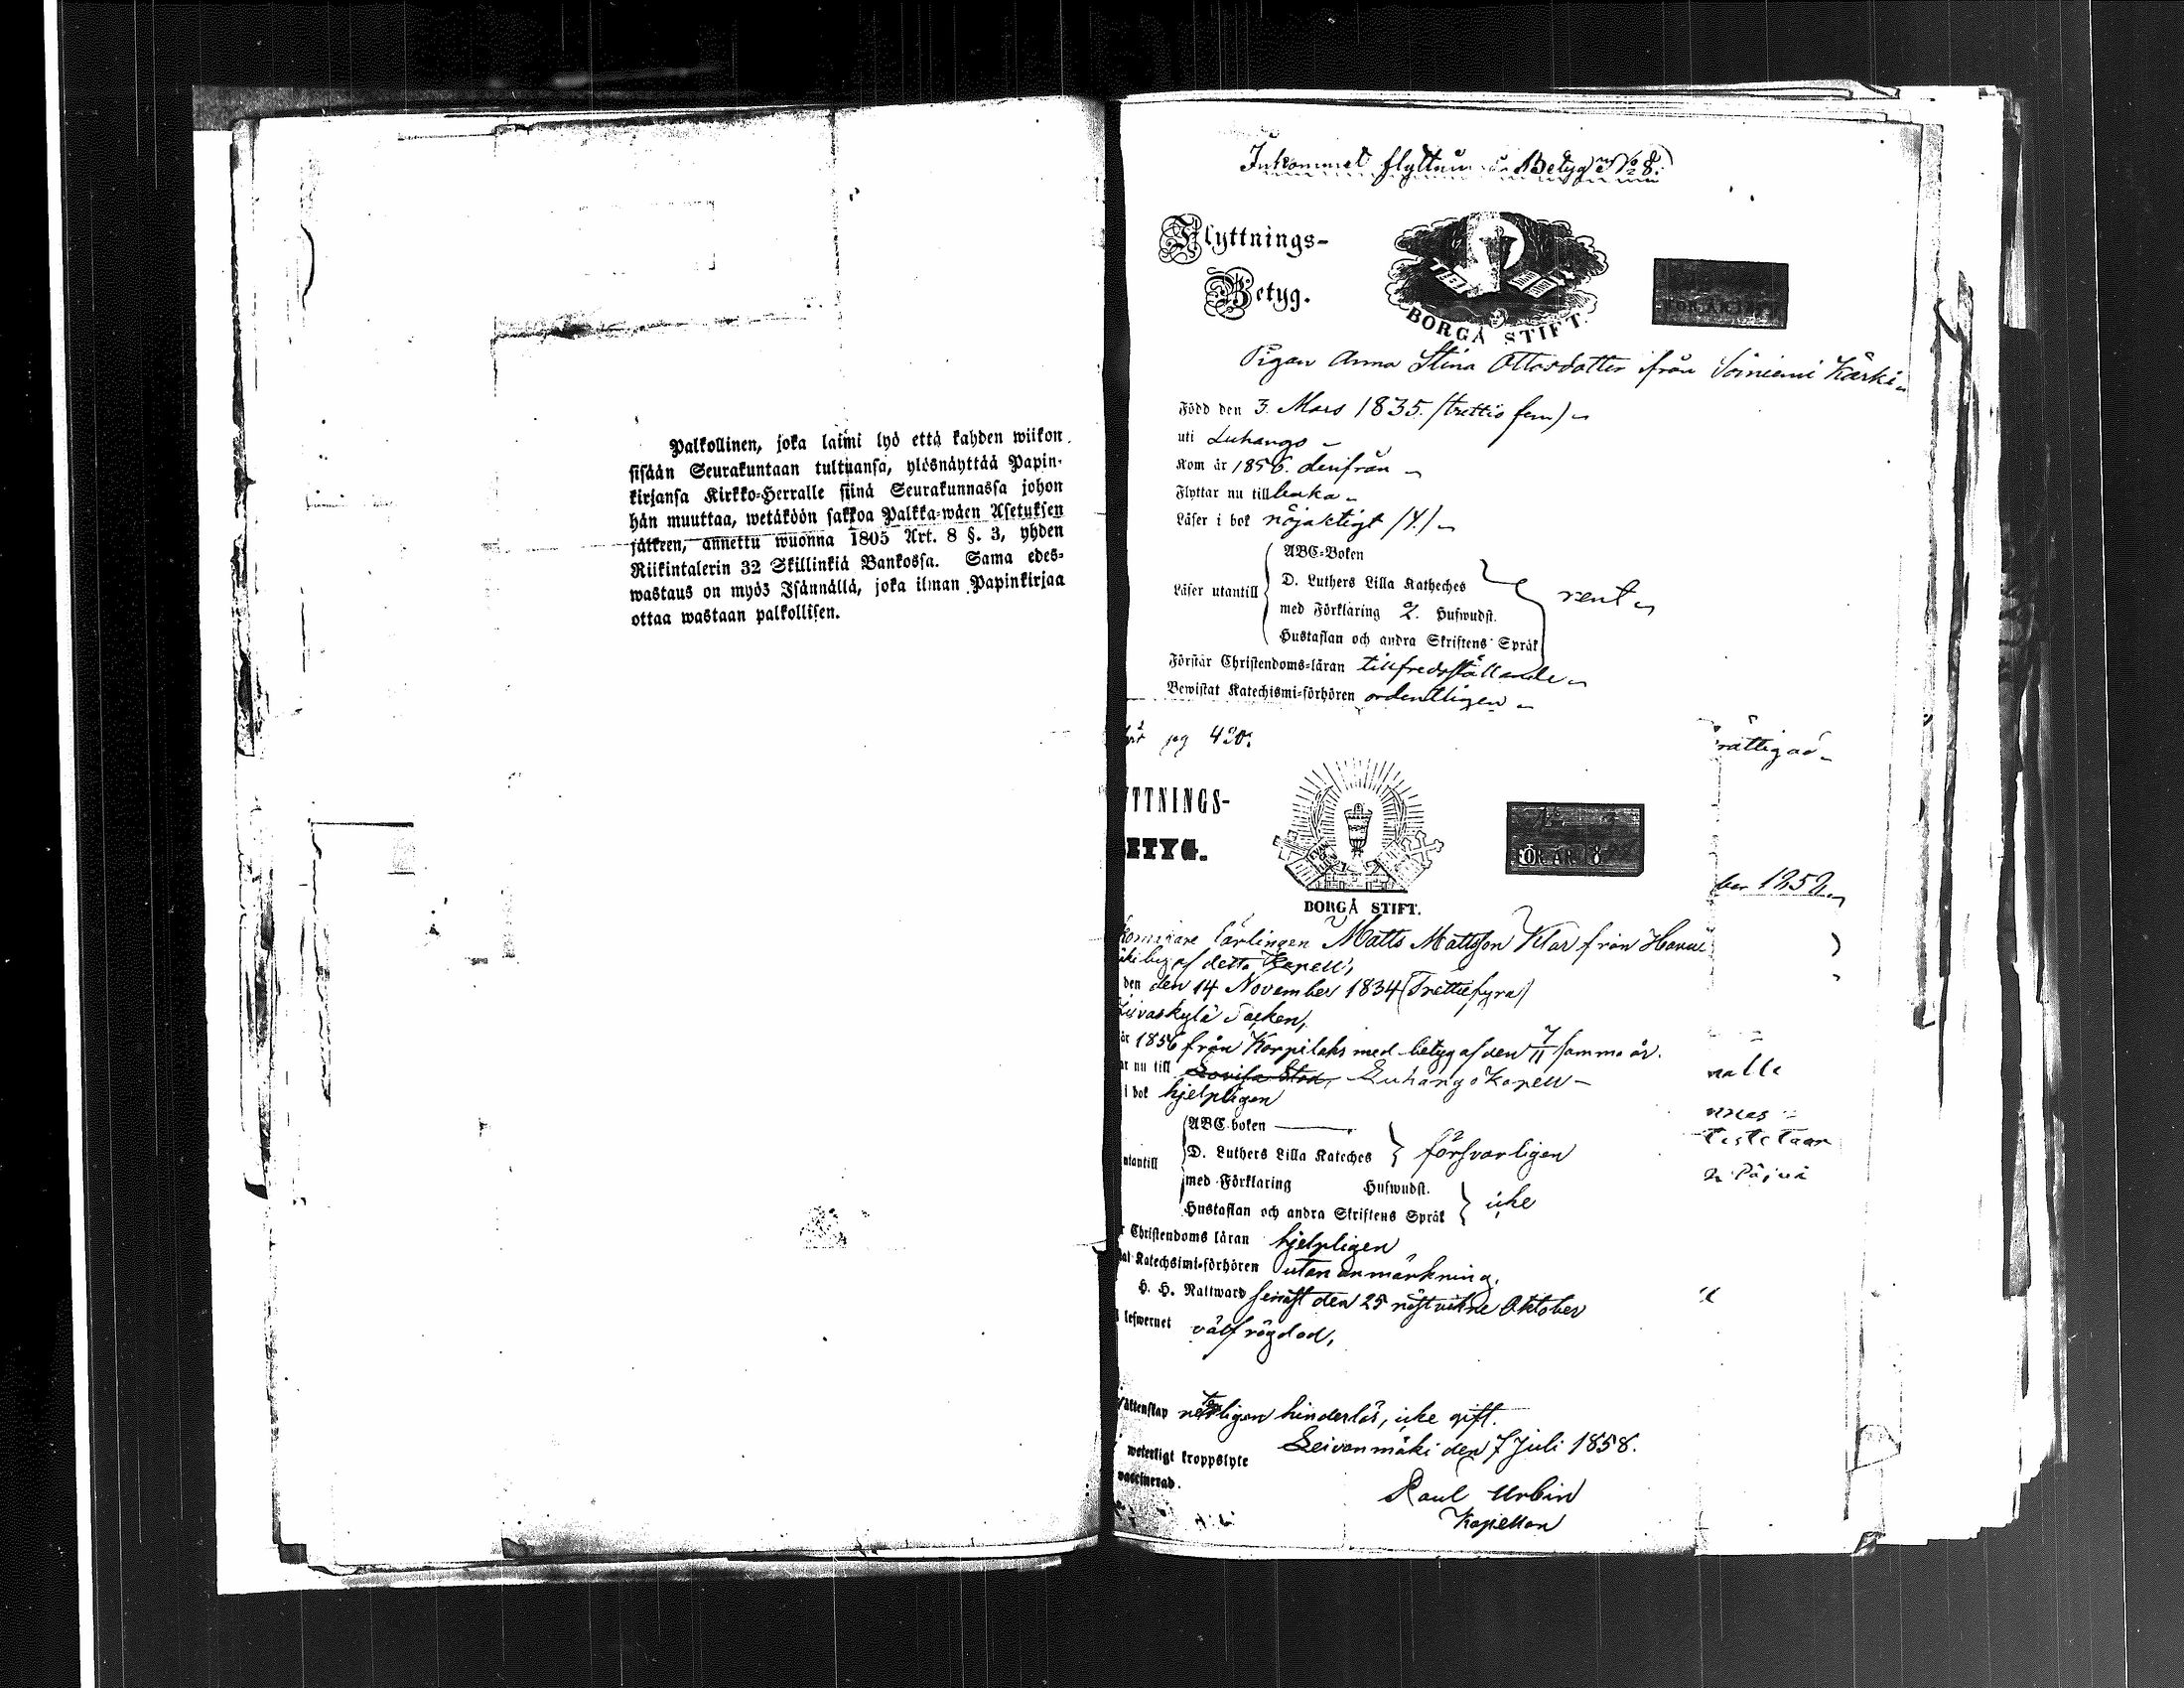 Palkollinen, joka laimi lyö että kahden wiikon
sisään Seurakuntaan tultuansa, ylösnäyttää Papin-
kirjansa Kirkko-Herralle siinä Seurakunnassa johon
hän muuttaa, wetäköön sakkoa Palkka-wäen Asetuksen
jälkeen, annettu wuonna 1805 Art. 8 §. 3, yhden
Riikintalerin 32 Skillinkiä Bankossa. Sama edes-
wastaus on myös Isännällä, joka ilman Papinkirjaa
ottaa wastaan palkollisen.
Inkommet flyttnings Betyg N° 8.
Flyttnings-
Betyg.
BORGÅ STIFT.
FÖR ÅR
Pigan Anna Stina Ottosdotter från Soiniemi Kärki
Född den 3. Mars 1835. (trettio fem)
uti Luhango
Kom år 1856. derifrån
Flyttar nu till baka
Läser i bok nöjaktigt (4.)
ABC-Boken
D. Luthers Lilla Katheches
Läser utantill
med Förklaring 2. Hufwudst.
rent
Hustaflan och andra Skriftens Språk
Förstår Christendoms-läran tillfredsställande
Bewistat Katechismi-förhören ordentligen
pag 420.
rättigad
YTTNINGS-
ETYG.
BORGÅ STIFT.
FÖR ÅR 18
ber 1858
lärlingen Matts Mattsson Vitar från Havu
mäki by af detta Kapell,
den den 14 November 1834 (Trettiofyra)
Jyväskylä Socken,
år 1856 från Korpilaks med betyg af den 7/11 samma år.
ar nu till Lovisa Stad, Luhangö Kapell
i bok hjelpligen
ABC boken
D. Luthers Lilla Kateches försvarligen
utantill
med Förklaring Hufwudst.
Hustaflan och andra Skriftens Språk icke
r Christendoms läran hjelpligen
tat Katechsimi-förhören utan anmärkning.
H. H. Nattward senast den 25 nästvikne Oktober
lefwernet välfrägdad,
nalle
Päivä
fättenskap veterligen hinderlös, icke gift.
weterligt kroppslyte
Leivonmäki den 7 Juli 1858.
vaccinerad.
Paul Urbin
Kapellan